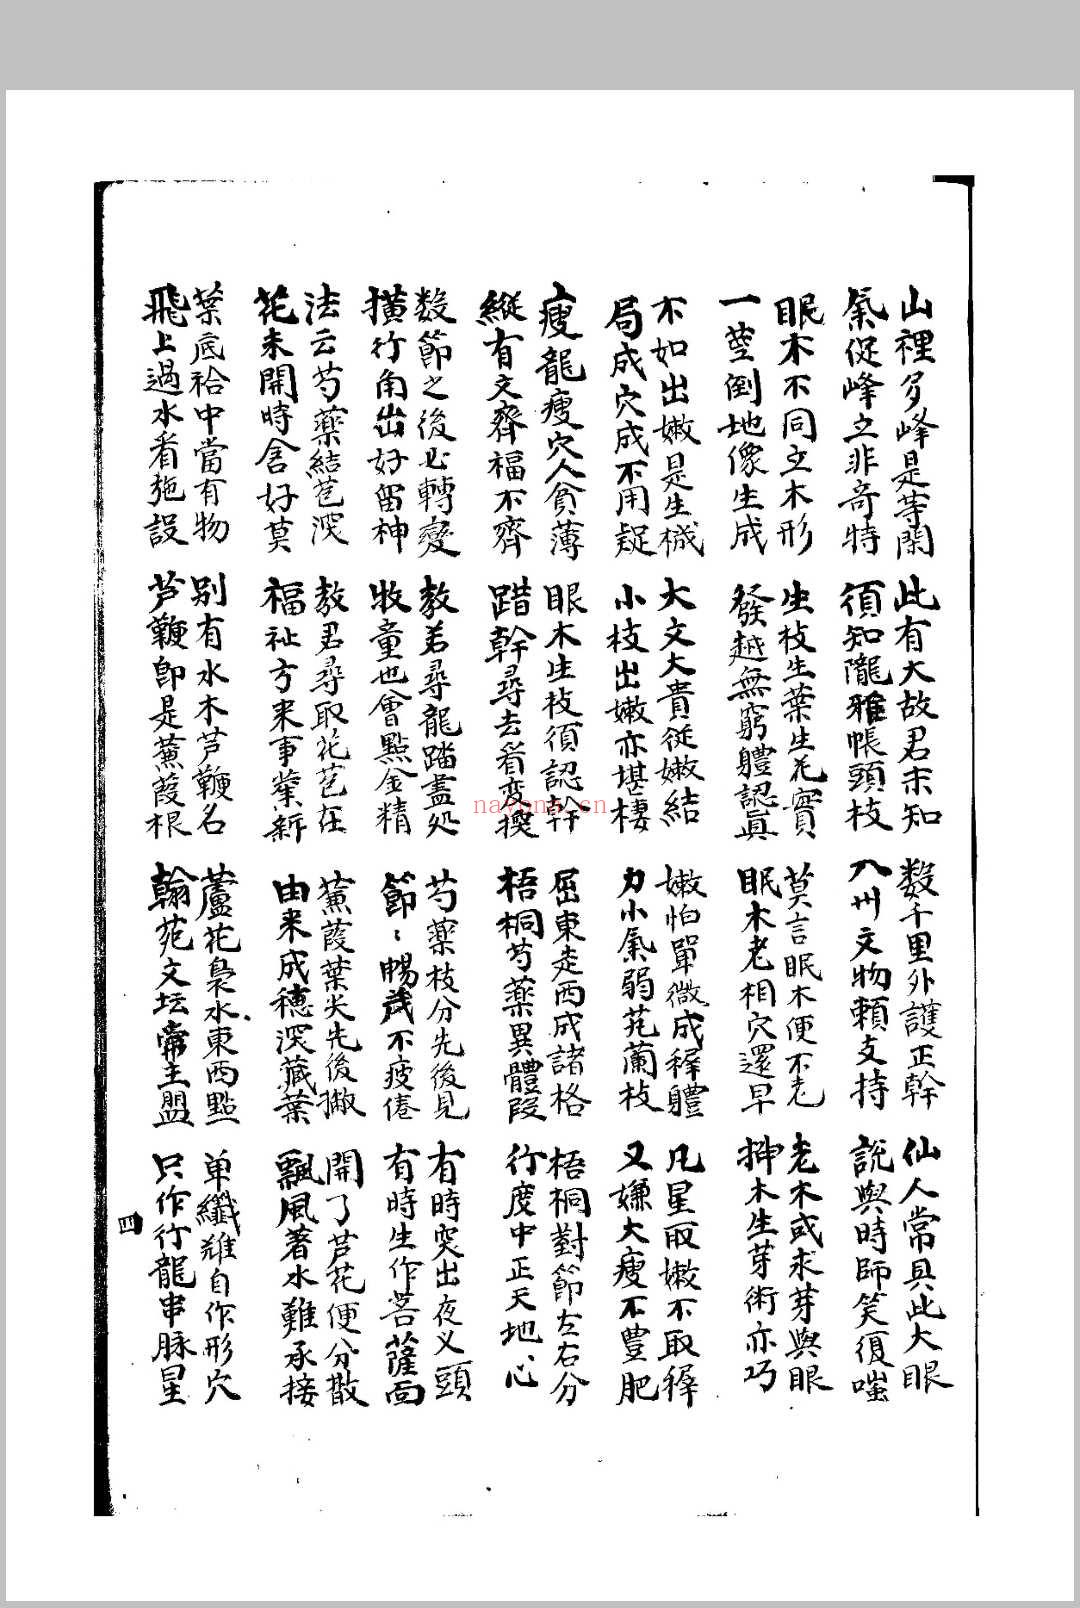 山裡多峰是等閑 此有大故君未知 数千里外護正幹 仙人常具此大眼
氣促峰立非奇特 須知隴雅帳頭枝 八州文物賴支持 說與時師笑復嗤
眠木不同立木形 生枝生葉生花實 莫言眠木便不老 老木或求芽與眼
一莖倒地像生成 發越無窮軆認真 眠木老相穴還早 抻木生芽術亦巧
不如出嫩是生機 大文大貴従嫩結 嫩怕單微成穉軆 凡星取嫩不取穉
局成穴成不用疑 小枝出嫩亦堪棲 力小氣弱芄蘭枝 又嫌大瘦不豊肥
瘦龍瘦穴人貧薄 眼木生枝須認幹 屈東走西成諸格 梧桐對節左右分
縱有文齊福不齊 踏幹尋去看変換 梧桐芍薬異體段 行度中正天地心
数節之後必轉變 教君尋龍踏盡処 芍薬枝分先後見 有時突出夜义頭
横行角出好留神 牧童也會點金精 節〻暢茂不疲倦 有時生作菩薩面
法云芍薬結苞深 教君尋取花苞在 蒹葭葉尖先後撇 開了芦花便分散
花未開時含好莫 福祉方来事業新 由来成穗深藏葉 飄風著水難承接
葉底袷中當有物 别有水木芦鞭名 蘆花裊水東西點 单纖雖自作形穴
飛上過水看施設 芦鞭即是蒹葭根 翰苑文坛常主盟 只作行龍串脉星
四
nayona.cn